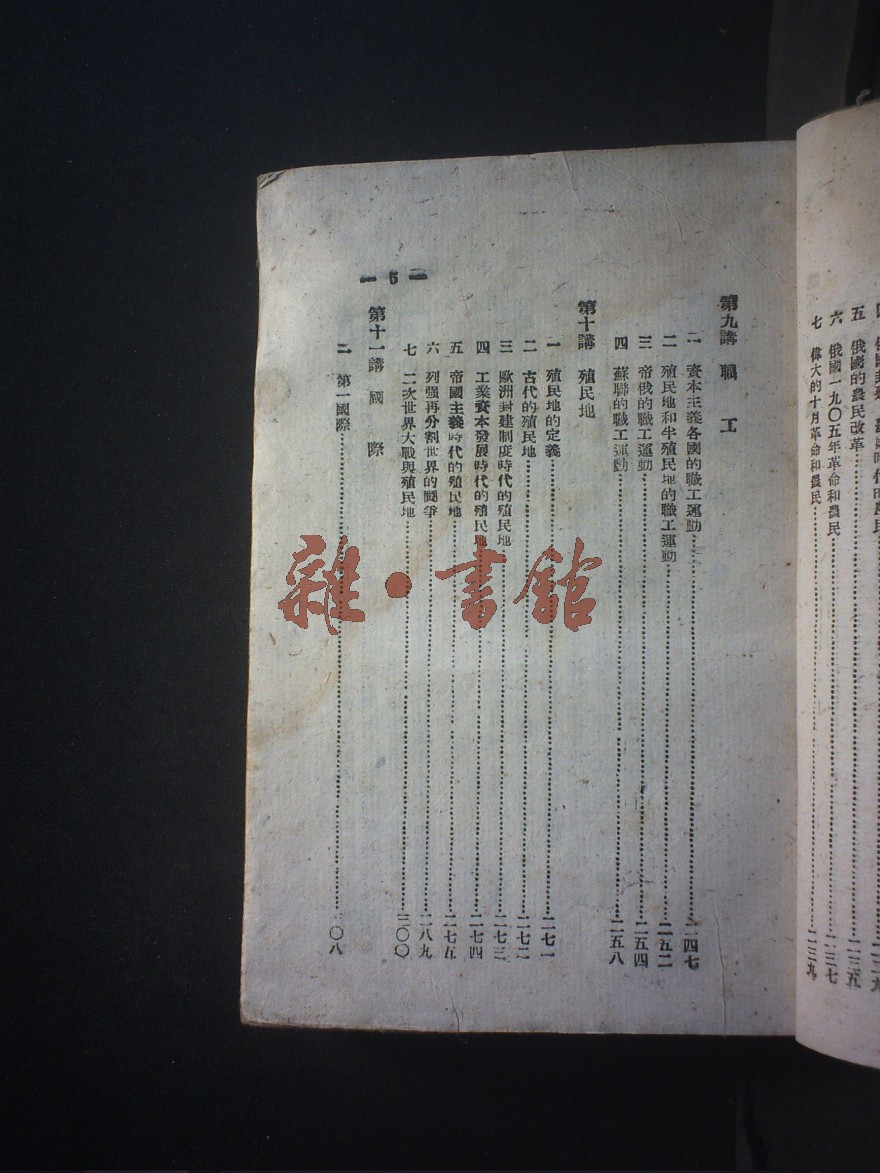 五 俄國的農民改革……二三五
六 俄國一九〇五年革命和農民……二三七
七 偉大的十月革命和農民……二三九
第九講 職工
一 資本主義各國的職工運動……二四七
二 殖民地和半殖民地的職工運動……二五二
三 帝俄的職工運動……二五四
四 蘇聯的職工運動……二五八
第十講 殖民地
一 殖民地的定義……二七一
二 古代的殖民地……二七二
三 歐洲封建制度時代的殖民地……二七三
四 工業資本發展時代的殖民地……二七四
五 帝國主義時代的殖民地……二七五
六 列强再分割世界的鬪爭……二八九
七 二次世界大戰與殖民地……三〇〇
第十一講 國際
第一國際……〇八
— 5 —
雜·書館